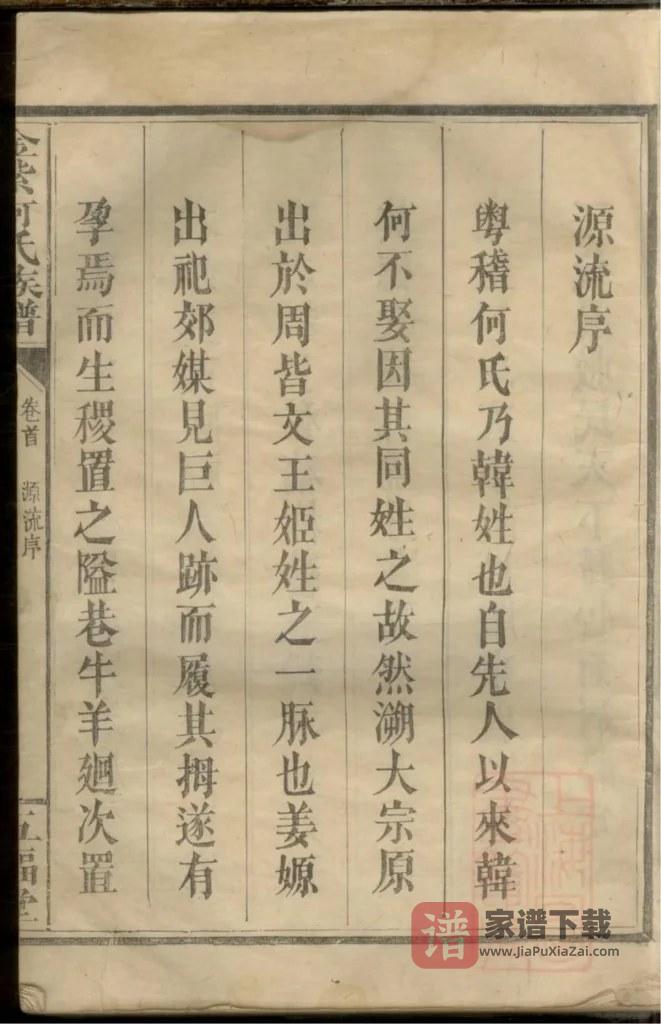 源流序
粵稽何氏乃韓姓也自先人以來韓
何不娶因其同姓之故然溯大宗原
出於周皆文王姬姓之一脉也姜嫄
出祀郊媒見巨人跡而履其拇遂有
孕焉而生稷置之隘巷牛羊廻次置
金紫何氏族譜
卷首 源流序
五福堂
谱 家谱下载
www.JiaPuXiaZai.com